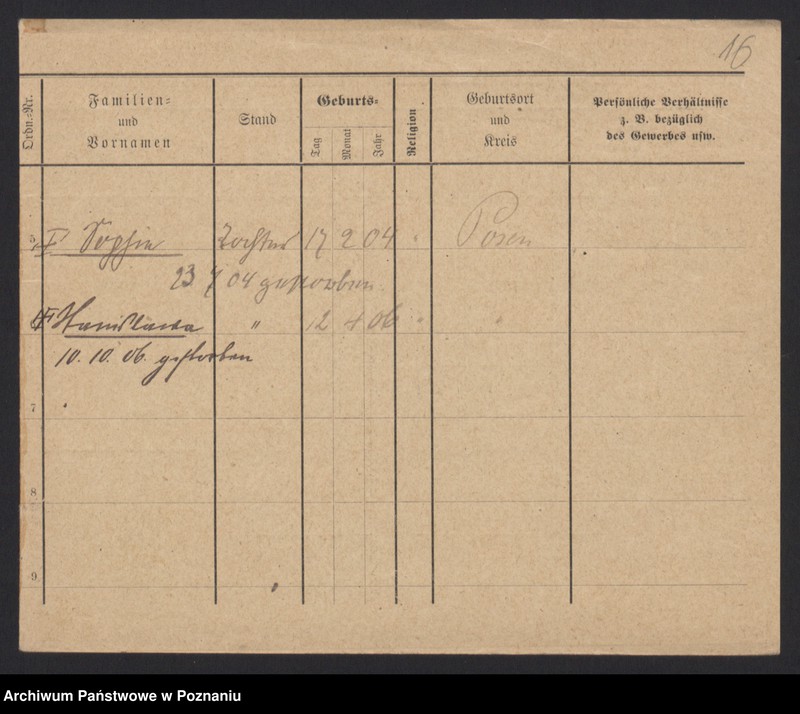 16
Ordn.-Nr.
Familien-
und
Vornamen
Stand
Geburts-
Tag
Monat
Jahr
Religion
Geburtsort
und
Kreis
Persönliche Verhältnisse
z. B. bezüglich
des Gewerbes usw.
5 Sophie Tochter 17 2 04 " Posen
23 7 04 gestorben
Stanislawa " 12 4 06 "
10. 10. 06. gestorben
7
8
9.
Archiwum Państwowe w Poznaniu